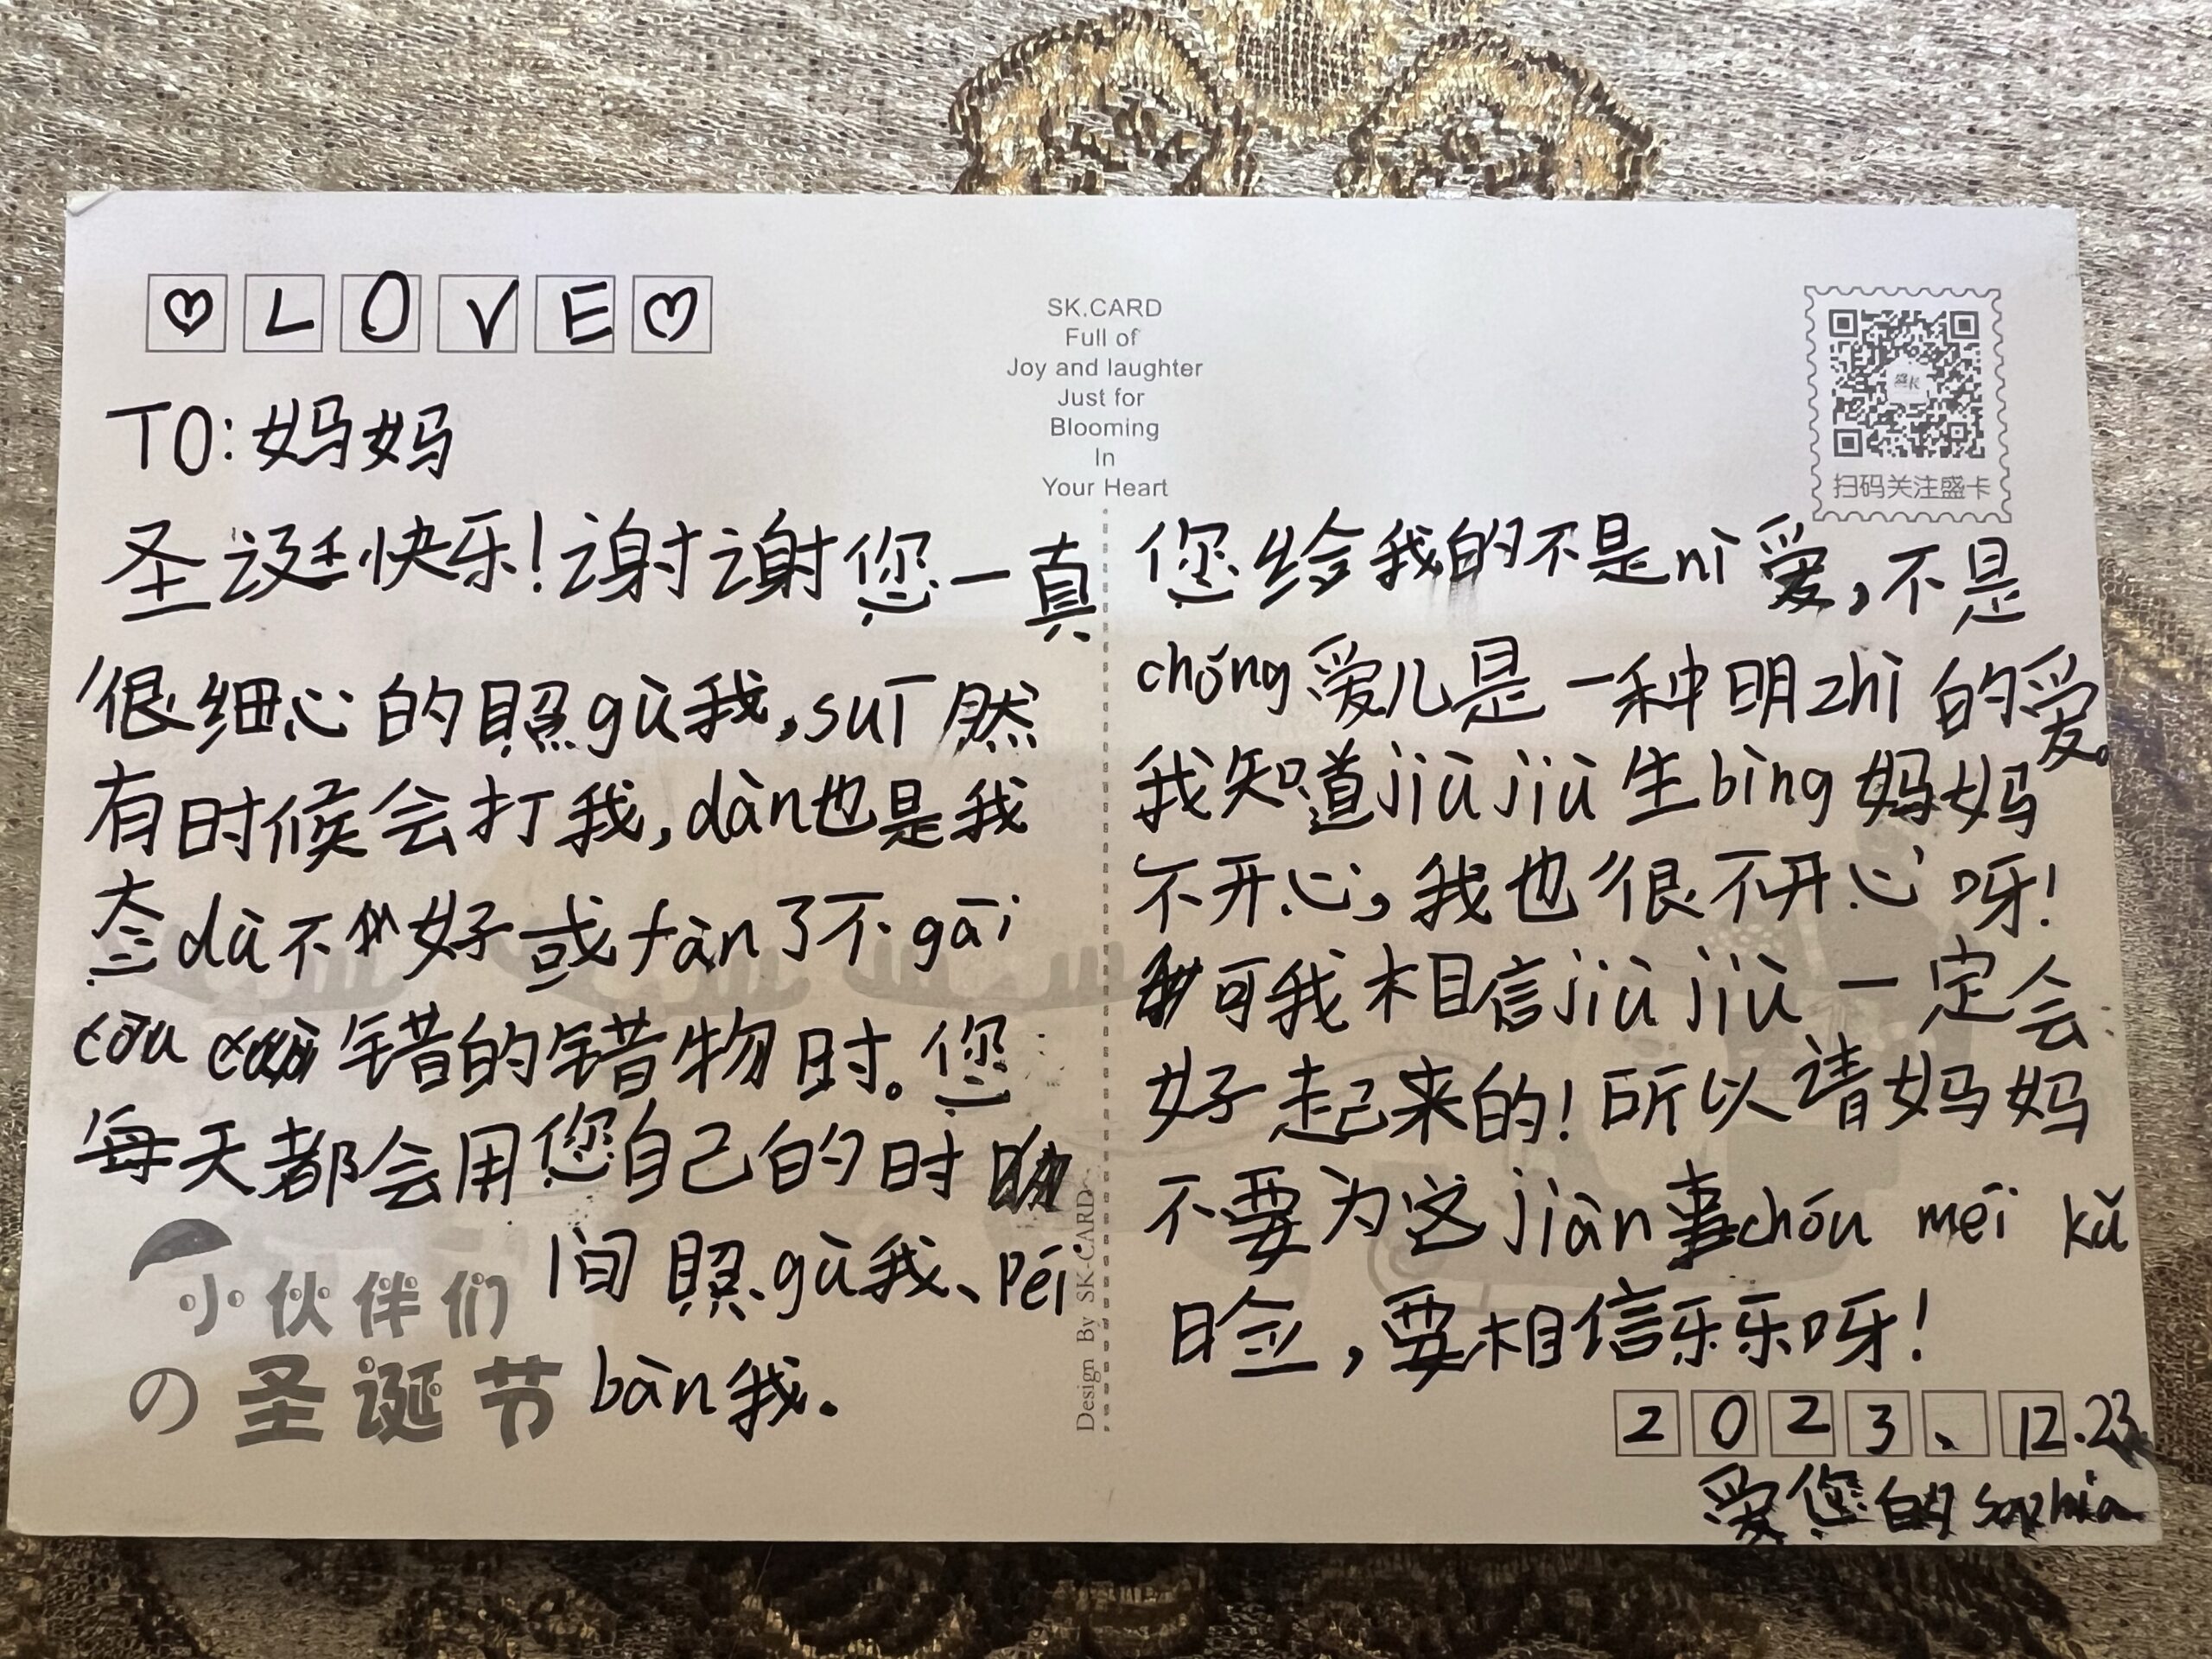 ♡LOVE♡
TO:妈妈
圣诞快乐!谢谢您一真
很细心的照gù我,suī然
有时候会打我,dàn也是我
态dù不好或fàn了不gāi
错的错物时。您
每天都会用您自己的时
间照gù我、péi
bàn我.
小伙伴们
の圣诞节
SK.CARD
Full of
Joy and laughter
Just for
Blooming
In
Your Heart
Design By SK-CARD
扫码关注盛卡
您给我的不是nì爱,不是
chǒng爱儿是一种明zhì的爱。
我知道jiù jiù生bìng妈妈
不开心,我也很不开心呀!
可我相信jiù jiù一定会
好起来的!所以请妈妈
不要为这jiàn事chóu méi kǔ
脸,要相信乐乐呀!
2023、12.23
爱您的Sophia